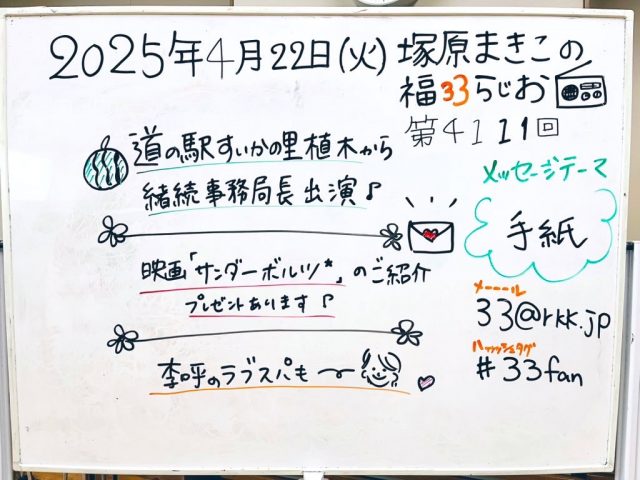 2025年4月22日(火) 塚原まきこの
福33らじお
第4111回
道の駅すいかの里植木から
緒続事務局長出演♪
映画「サンダーボルツ*」のご紹介
プレゼントあります♪
李呼のラブスパも〜
メッセージテーマ
手紙
メーール
33@rkk.jp
ハッシュタグ
#33fan